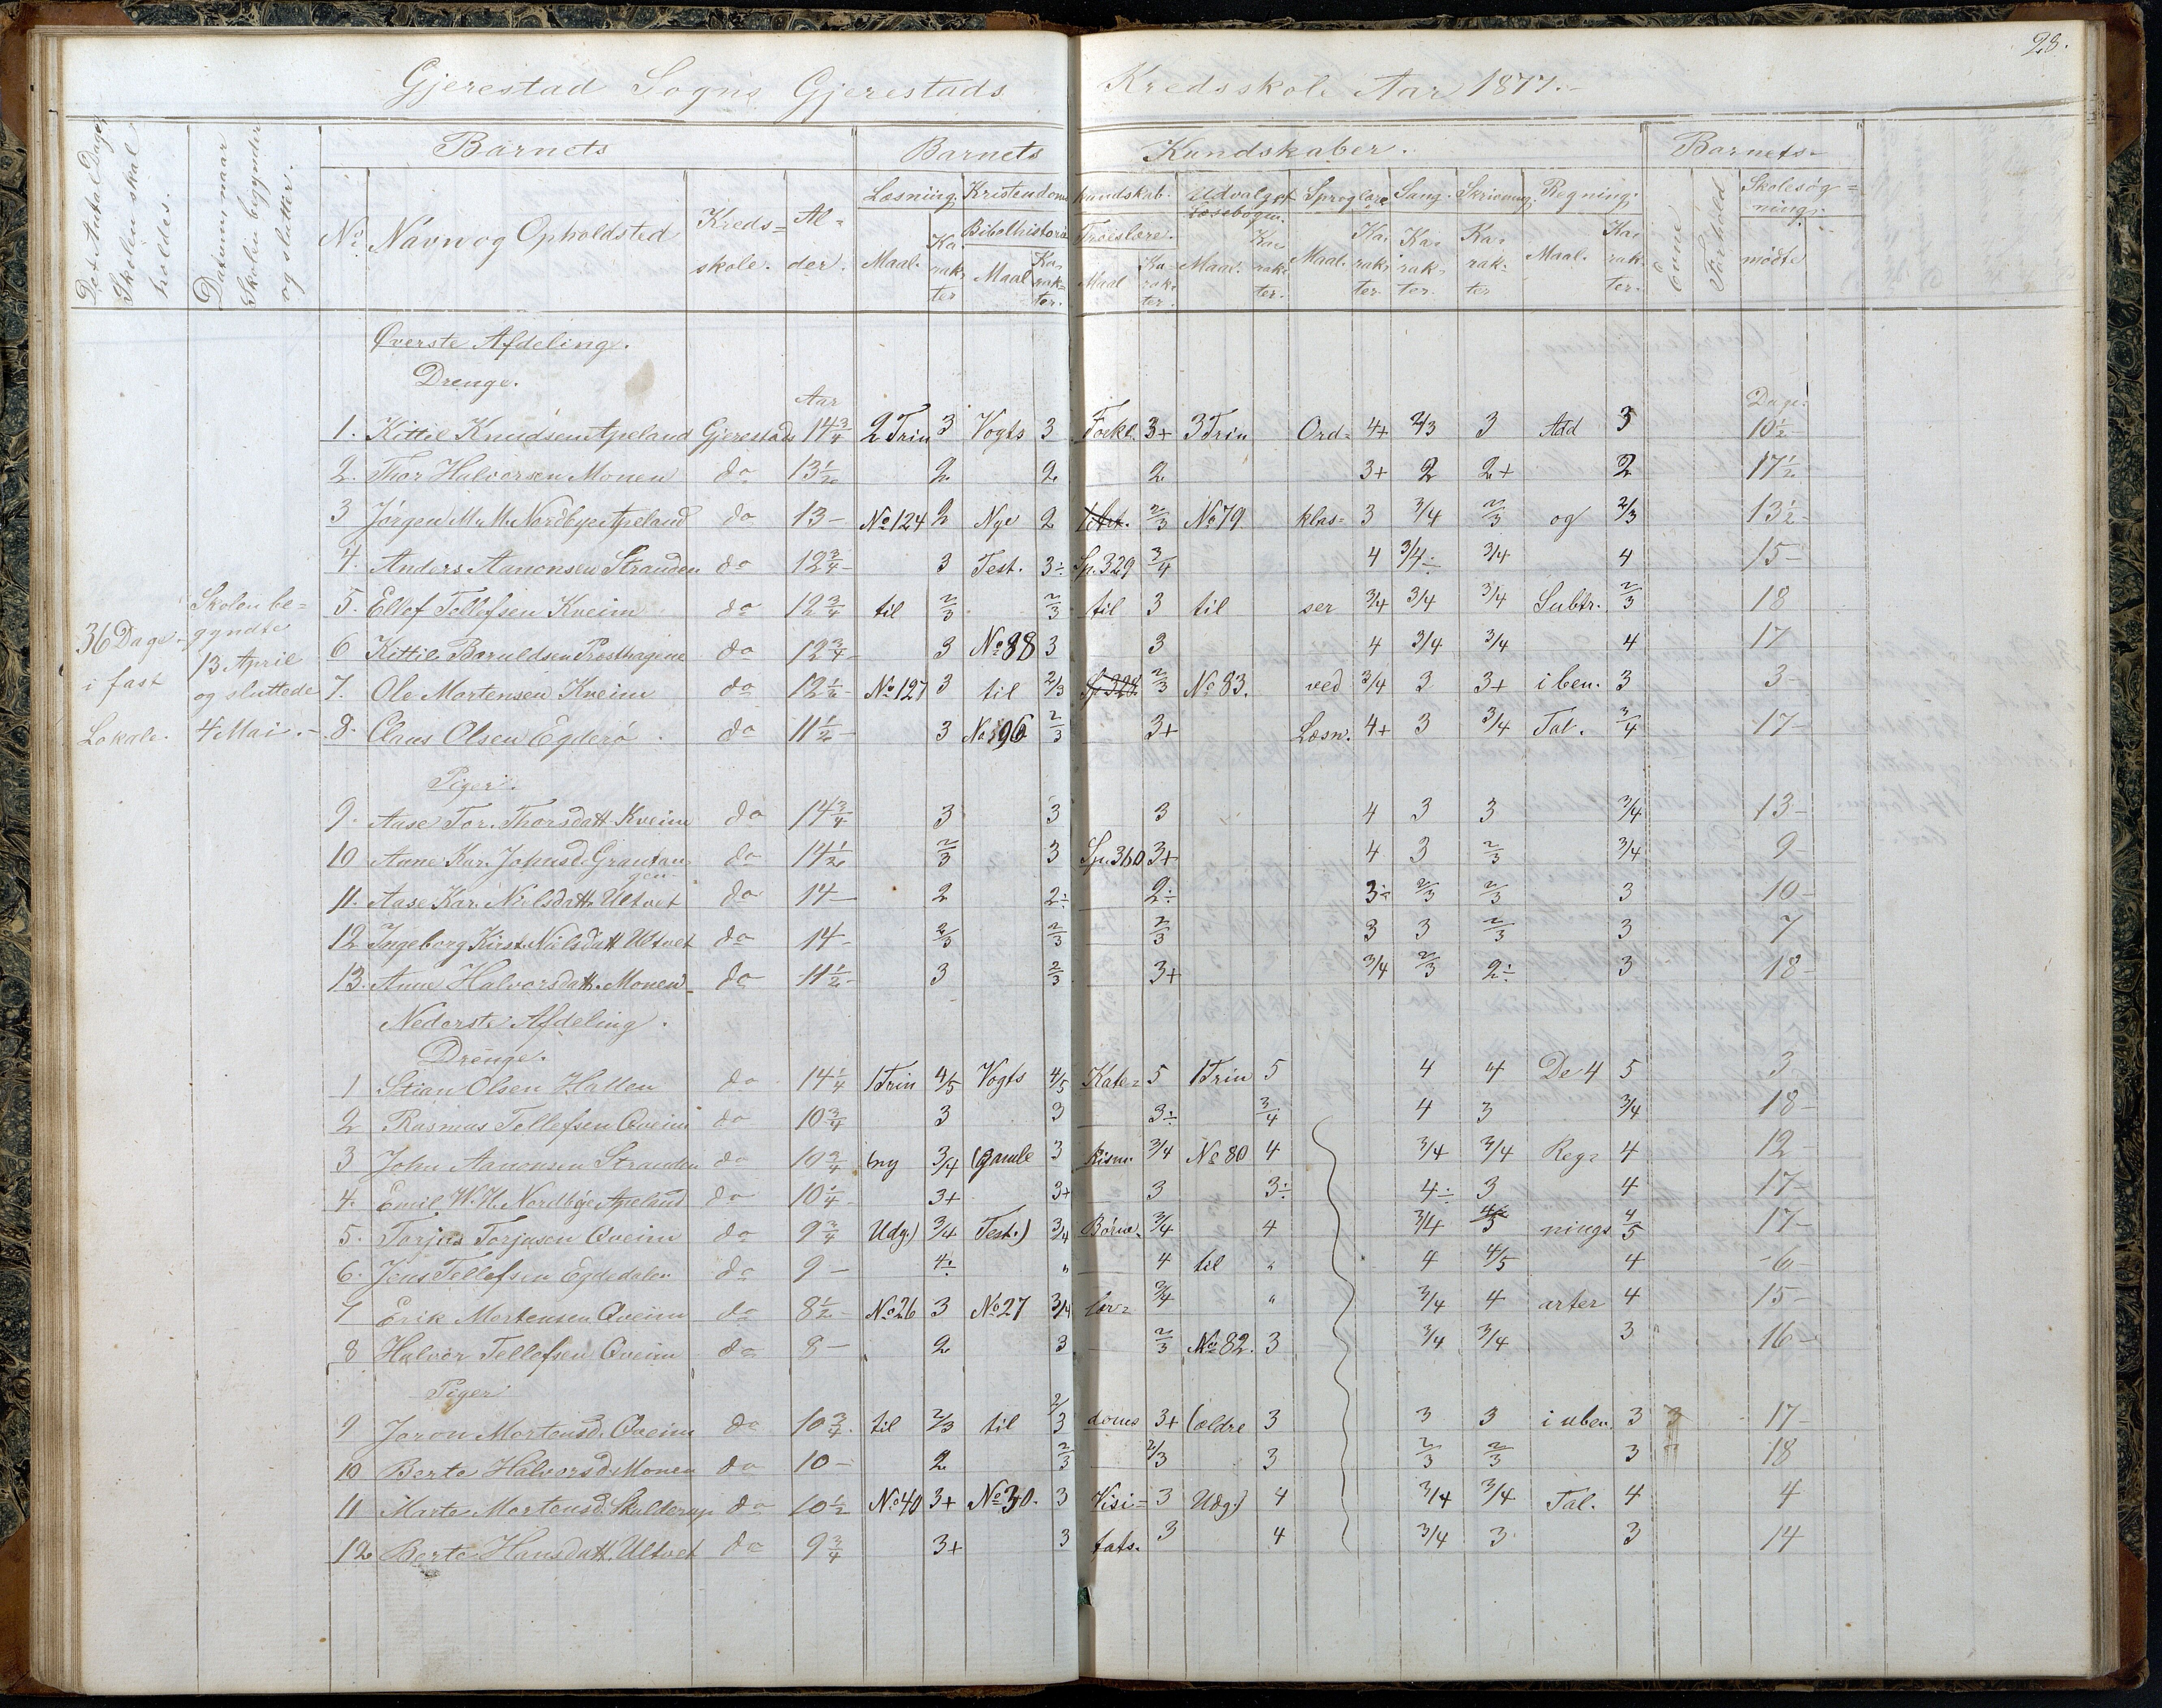 28.
Gjerestad Sogns Gjerestads Kredsskole Aar 1877.-
Det Antal Dage Skolen skal holdes.
Datum, naar Skolen begynder og slutter.
Barnets
Barnets Kundskaber.
Barnets
No
Navn og Opholdsted
Kreds=skole.
Al=der.
Læsning
Kristendomskundskab.
Udvalget Læsebogen.
Sproglære
Sang.
Skrivning.
Regning.
Evne
Forhold
Skolesøg=ning.
Bibelhistorie
Troeslære.
Maal. Karakter
Maal Karakter.
Maal Karakter.
Maal. Karakter.
Maal. Karakter.
Karakter.
Karakter
Maal. Karakter.
mødte
Øverste Afdeling.
Drenge.
Aar
Dage.
1. Kittil Knudsen Apeland Gjerestads 14 3/4 2 Trin 3 Vogts 3 Forkl. 3+ 3 Trin Ord= 4+ 2/3 3 Add 3 10 1/2
2. Thor Halvorsen Monen do 13 1/2 2 2 2 3+ 2 2+ 2 17 1/2
3 Jørgen M. M. Nordbye Apeland do 13- No 124 2 Nye 2 2/3 No 79 klas= 3 3/4 2/3 og 2/3 13 1/2
4. Anders Aanonsen Stranden do 12 3/4- 3 Test. 3÷ Sp. 329 3/4 4 3/4÷ 3/4 4 15-
5. Ellef Tellefsen Kveim do 12 3/4 til 2/3 2/3 til 3 til ser 3/4 3/4 3/4 Subtr. 2/3 18
6 Kittil Baruldsen Presthagene do 12 3/4- 3 No 88 3 3 4 3/4 3/4 4 17
7. Ole Mortensen Kveim do 12 1/4- No 127 3 til 2/3 Sp 328 2/3 No 83. ved 3/4 3 3+ i ben. 3 3-
8. Claus Olsen Egderø do 11 1/2- 3 No 96 2/3 3+ Læsn. 4+ 3 3/4 Tal. 3/4 17-
36 Dage i fast Lokale.
Skolen be=gyndte 13 April og sluttede 4 Mai.-
Piger.
9. Aase Tor. Thorsdatt Kveim do 14 3/4 3 3 3 4 3 3 3/4 13-
10 Anne Kar. Johnsd. Grautan gen do 14 1/2 2/3 3 Sp. 360 3+ 4 3 2/3 3/4 9-
11. Aase Kar. Nilsdatt. Ultvet do 14- 2 2÷ 2÷ 3÷ 2/3 2/3 3 10-
12 Ingeborg Kirst. Nilsdatt Ultvet do 14- 2/3 2/3 2/3 3 3 2/3 3 7
13. Anne Halvorsdatt. Monen do 11 1/2- 3 2/3 3+ 3/4 2/3 2÷ 3 18-
Nederste Afdeling.
Drenge.
1 Stian Olsen Hallen do 14 1/4 1 Trin 4/5 Vogts 4/5 Kate= 5 1 Trin 5 4 4 De 4 5 3
2 Rasmus Tellefsen Qveim do 10 3/4 3 3 3÷ 3/4 4 3 3/4 18-
3 John Aanonsen Stranden do 10 3/4 (ny 3/4 (gamle 3 kism. 3/4 No 80 4 3/4 3/4 Reg= 4 12-
4. Emil W. H. Nordbye Apeland do 10 1/4- 3+ 3+ 3 3÷ 4÷ 3 4 17-
5. Torjus Torjusen Qveim do 9 3/4 Udg.) 3/4 Test.) 3/4 Børne= 3/4 4 3/4 3 nings 4/5 17-
6. Jens Tellefsen Egdedalen do 9- 4÷ " 4 til " 4 4/5 4 -6-
7 Erik Mortensen Qveim do 8 1/2- No 26 3 No 27 3/4 lær= 3/4 " 3/4 4 arter 4 15-
8 Halvor Tellefsen Qveim do 8- 2 3 2/3 No 82. 3 3/4 3/4 3 16-
Piger
9 Joron Mortensd. Qveim do 10 3/4. til 2/3 til 2/3 doms 3+ (ældre 3 3 3 i uben. 3 3 17-
10 Berte Halvorsd. Monen do 10- 2 2/3 2/3 3 2/3 2/3 3 18
11 Marte Mortensd. Skulderup do 10 1/2 No 40 3+ No 30. 3 Visi= 3 Udg.) 4 3/4 3/4 Tal. 4 4
12 Berte Hansdatt. Ultvet do 9 3/4 3+ 3 tats. 3 4 3/4 3 3 14